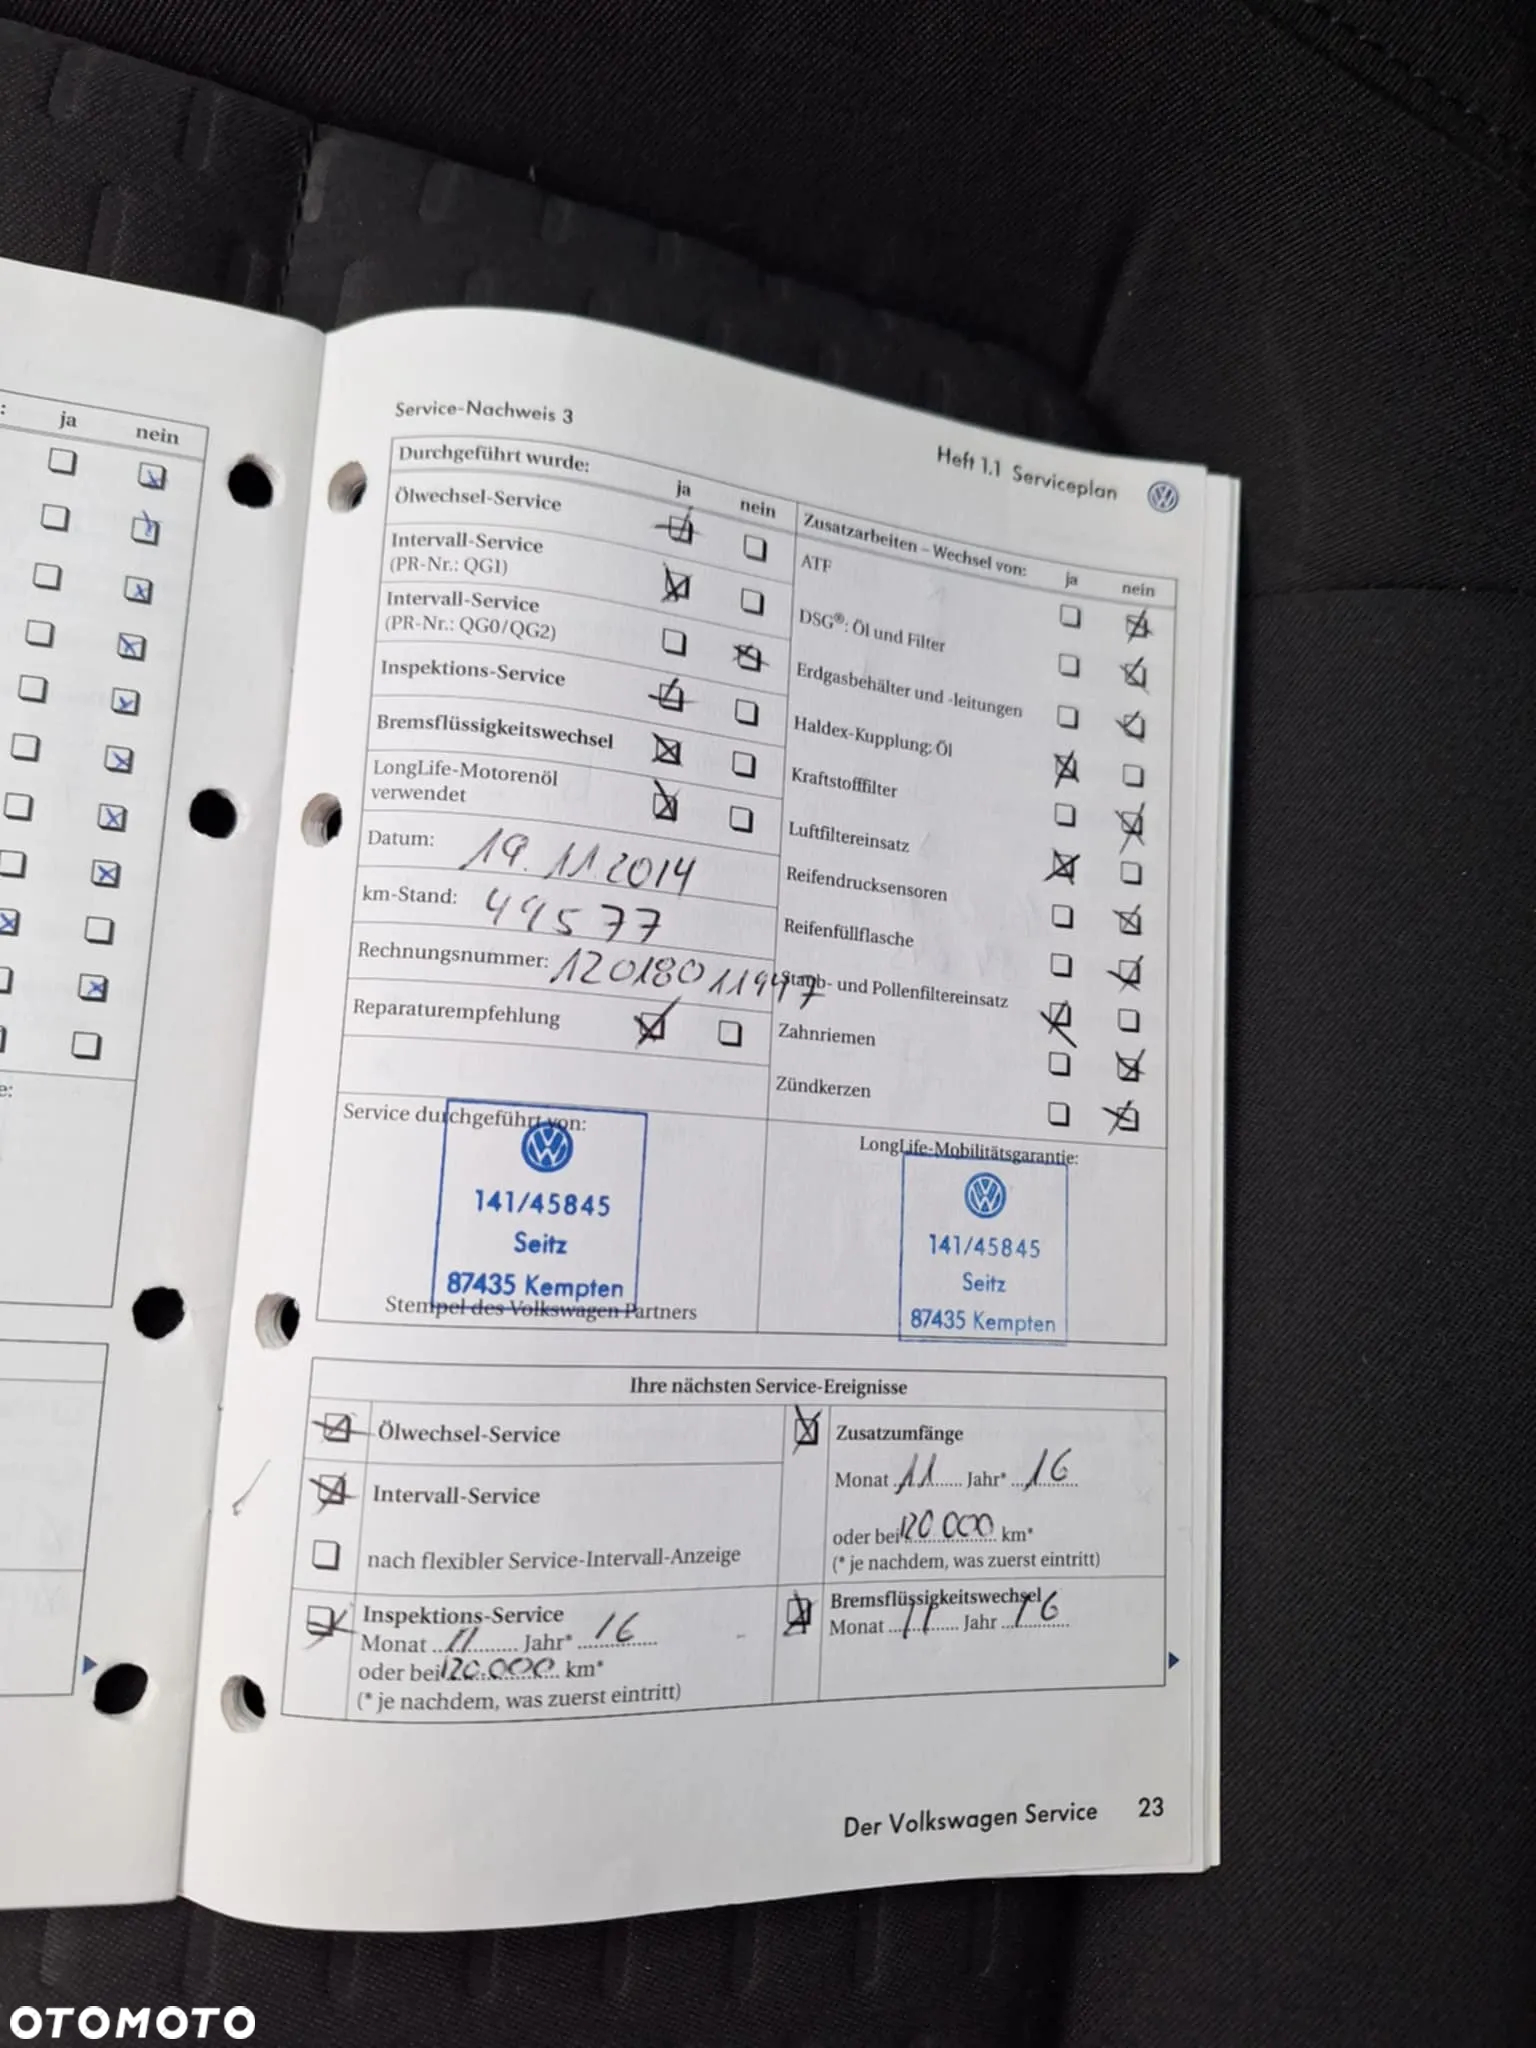 : ja nein
e:
Service-Nachweis 3
Heft 1.1 Serviceplan
Durchgeführt wurde: ja nein
Ölwechsel-Service
Intervall-Service
(PR-Nr.: QG1)
Intervall-Service
(PR-Nr.: QG0/QG2)
Inspektions-Service
Bremsflüssigkeitswechsel
LongLife-Motorenöl
verwendet
Datum: 19.11.2014
km-Stand:
Rechnungsnummer:
Reparaturempfehlung
Zusatzarbeiten – Wechsel von: ja nein
ATF
DSG®: Öl und Filter
Erdgasbehälter und -leitungen
Haldex-Kupplung: Öl
Kraftstofffilter
Luftfiltereinsatz
Reifendrucksensoren
Reifenfüllflasche
Staub- und Pollenfiltereinsatz
Zahnriemen
Zündkerzen
Service durchgeführt von:
141/45845
Seitz
87435 Kempten
Stempel des Volkswagen Partners
LongLife-Mobilitätsgarantie:
141/45845
Seitz
87435 Kempten
Ihre nächsten Service-Ereignisse
Ölwechsel-Service
Intervall-Service
nach flexibler Service-Intervall-Anzeige
Inspektions-Service
Monat 11 Jahr* 16
oder bei 120.000 km*
(* je nachdem, was zuerst eintritt)
Zusatzumfänge
Monat 11 Jahr* 16
oder bei 120 000 km*
(* je nachdem, was zuerst eintritt)
Bremsflüssigkeitswechsel
Monat 11 Jahr 16
Der Volkswagen Service 23
OTOMOTO